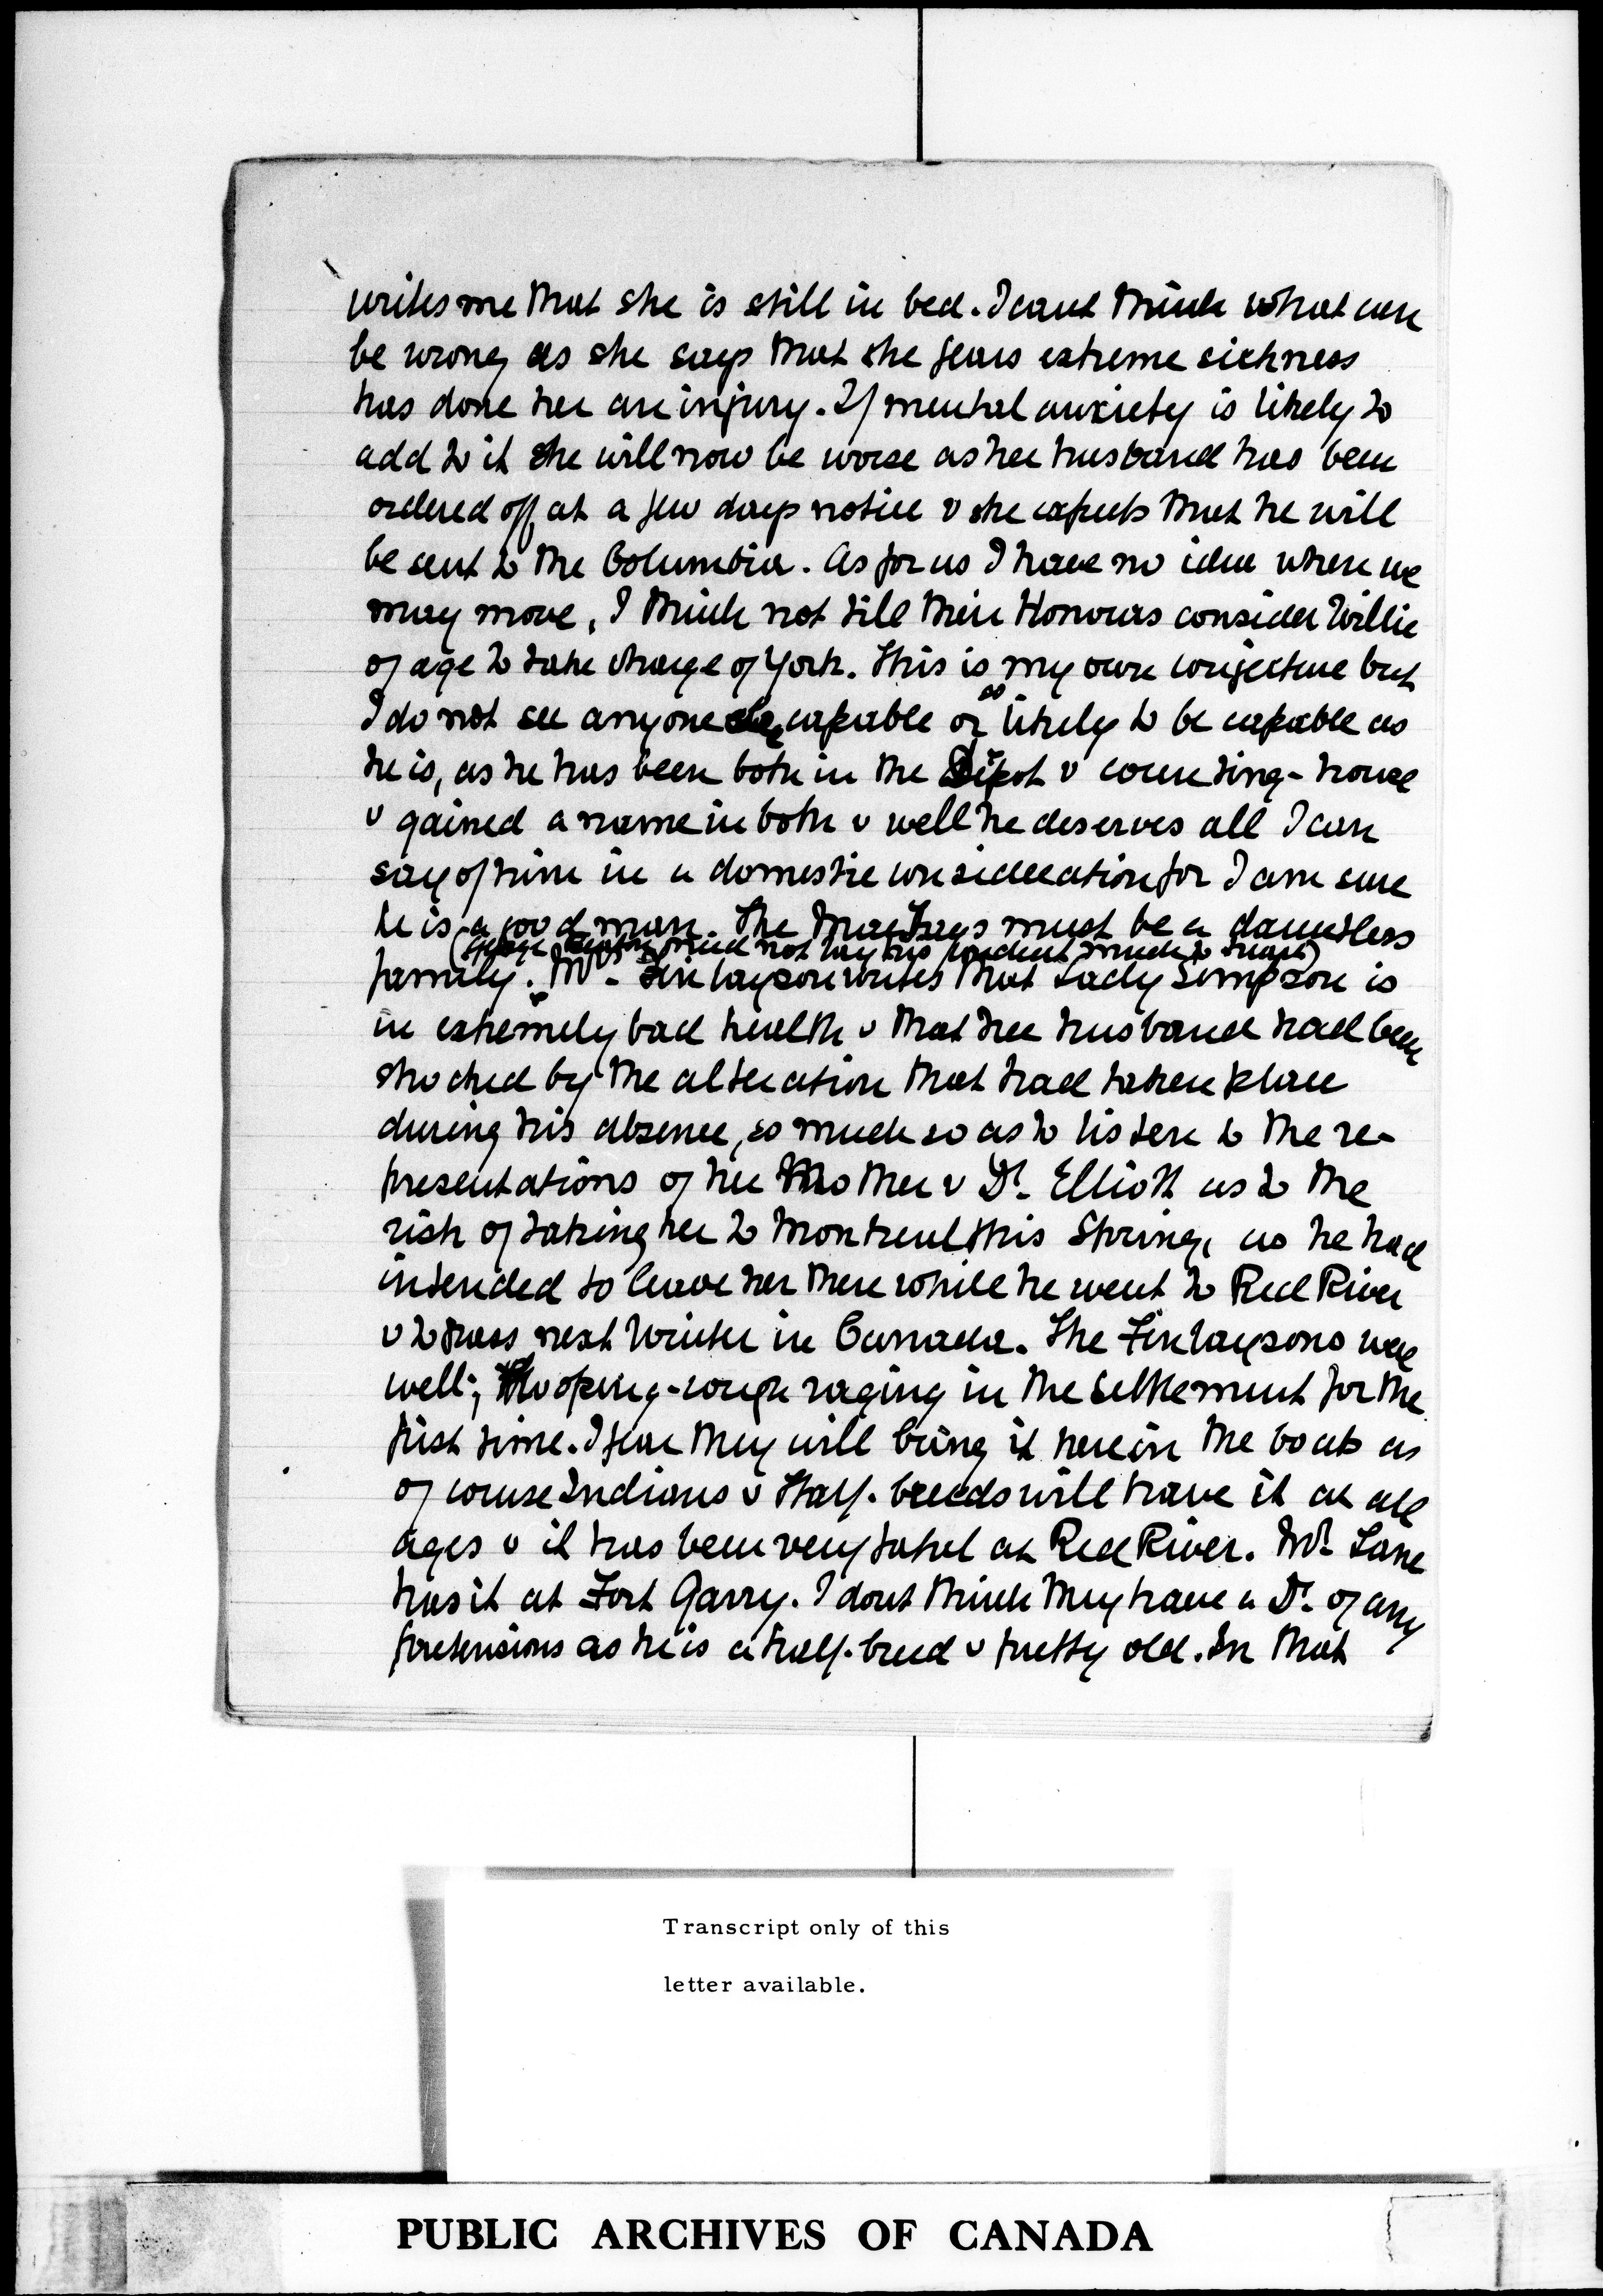 writes me that she is still in bed. I cant think what can
be wrong as she says that she fears extreme sickness
has done her an injury. If mental anxiety is likely to
add to it she will now be worse as her husband has been
ordered off at a few days notice & she expects that he will
be sent to the Columbia. As for us I have no idea when we
may move, I think not till their Honours consider Willie
of age to take charge of York. This is my own conjecture but
I do not see anyone capable or as likely to be capable as
he is, as he has been both in the Depot & counting-house
& gained a name in both & well he deserves all I can
say of him in a domestic consideration for I am sure
he is a good man. The MacTavs must be a dauntless
(need not lay his much to heart)
family. Mrs. Finlayson writes that Lady Simpson is
in extremely bad health & that her husband had been
shocked by the alteration that had taken place
during his absence, so much so as to listen to the re-
presentations of her Mother & Dr. Elliott as to the
risk of taking her to Montreal this Spring, as he had
intended to leave her there while he went to Red River
& to pass next Winter in Canada. The Finlaysons were
well; Hooping-cough raging in the settlement for the
first time. I fear they will bring it here in the boats as
of course Indians & Half-breeds will have it at all
ages & it has been very fatal at Red River. Mr. Lane
has it at Fort Garry. I dont think they have a Dr. of any
pretensions as he is a half-breed & pretty old. In that
Transcript only of this
letter available.
PUBLIC ARCHIVES OF CANADA